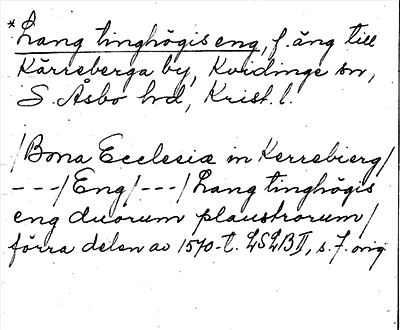 *Lang tinghögis eng, f. äng till
Kärreberga by, Kvidinge sn,
S. Åsbo hd, Krist. l.
/Bona Ecclesiæ in Kerrebierg/
---/Eng/---/Lang tinghögis
eng duorum plaustrorum/
förra delen av 1570-t. LSLB II, s. 7. orig